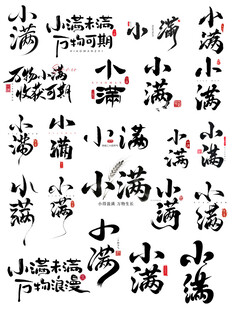 小满
小满未满
万物可期
小满
小满
万物小满
收获可期
小满
小满
小满
小满
小满
小满
小满
小满
小满
小满
小满
小满
小得盈满 万物生长
小满
小满
小满未满
万物浪漫
小满
小满
小满